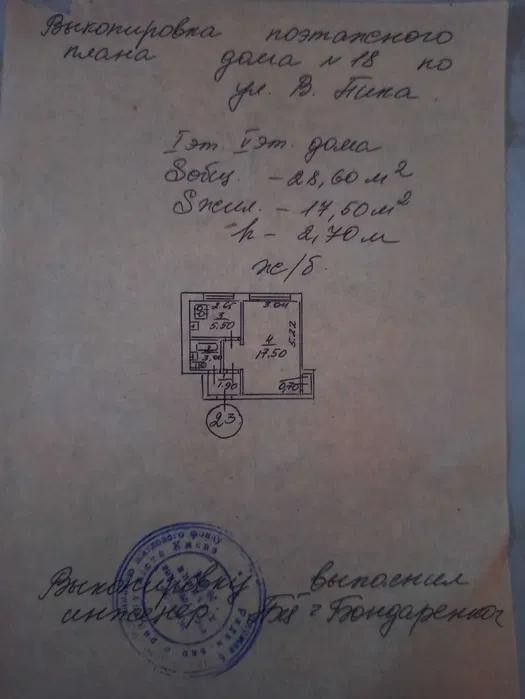 Выкопировка поэтажного
плана дома №18 по
ул. В. Пика.
I эт. V эт. дома
Sобщ. - 28,60 м²
Sжил. - 17,50 м²
h - 2,70 м
ж/б.
2.65
3.04
3
5.50
5.22
4
17.50
2
3,00
1.90
0,70
23
Выкопировку выполнил
инженер Бондаренко